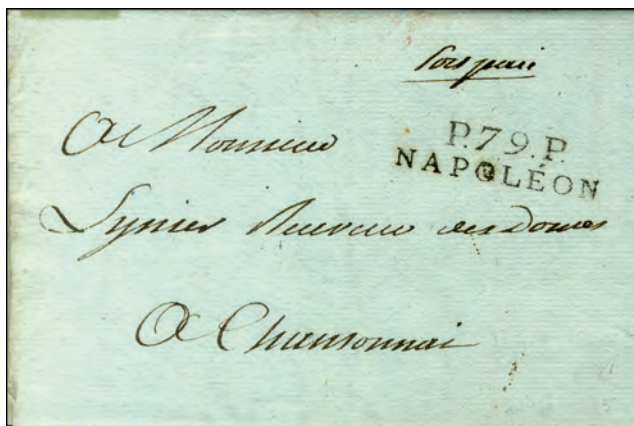 Port paié
P.79.P.
NAPOLÉON
A Monsieur
Lynier Receveur des Domes
A Chantonnai